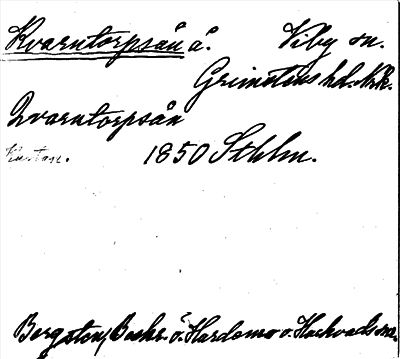 Kvarntorpsån å. Viby sn.
Grimstens hd. Nrk.
Qvarntorpsån
1850 Sthlm.
Bergsten, Beskr. ö. Hardemo o. Hackvads snr.